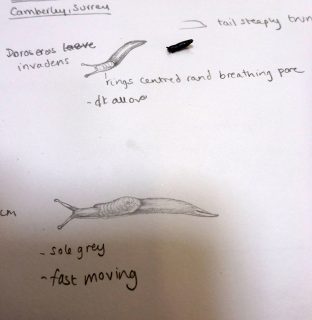 Camberley, Surrey
tail steeply trun
Doroseros
invadens
rings centred rand breathing pore
- dk all over
cm
- sole grey
- fast moving